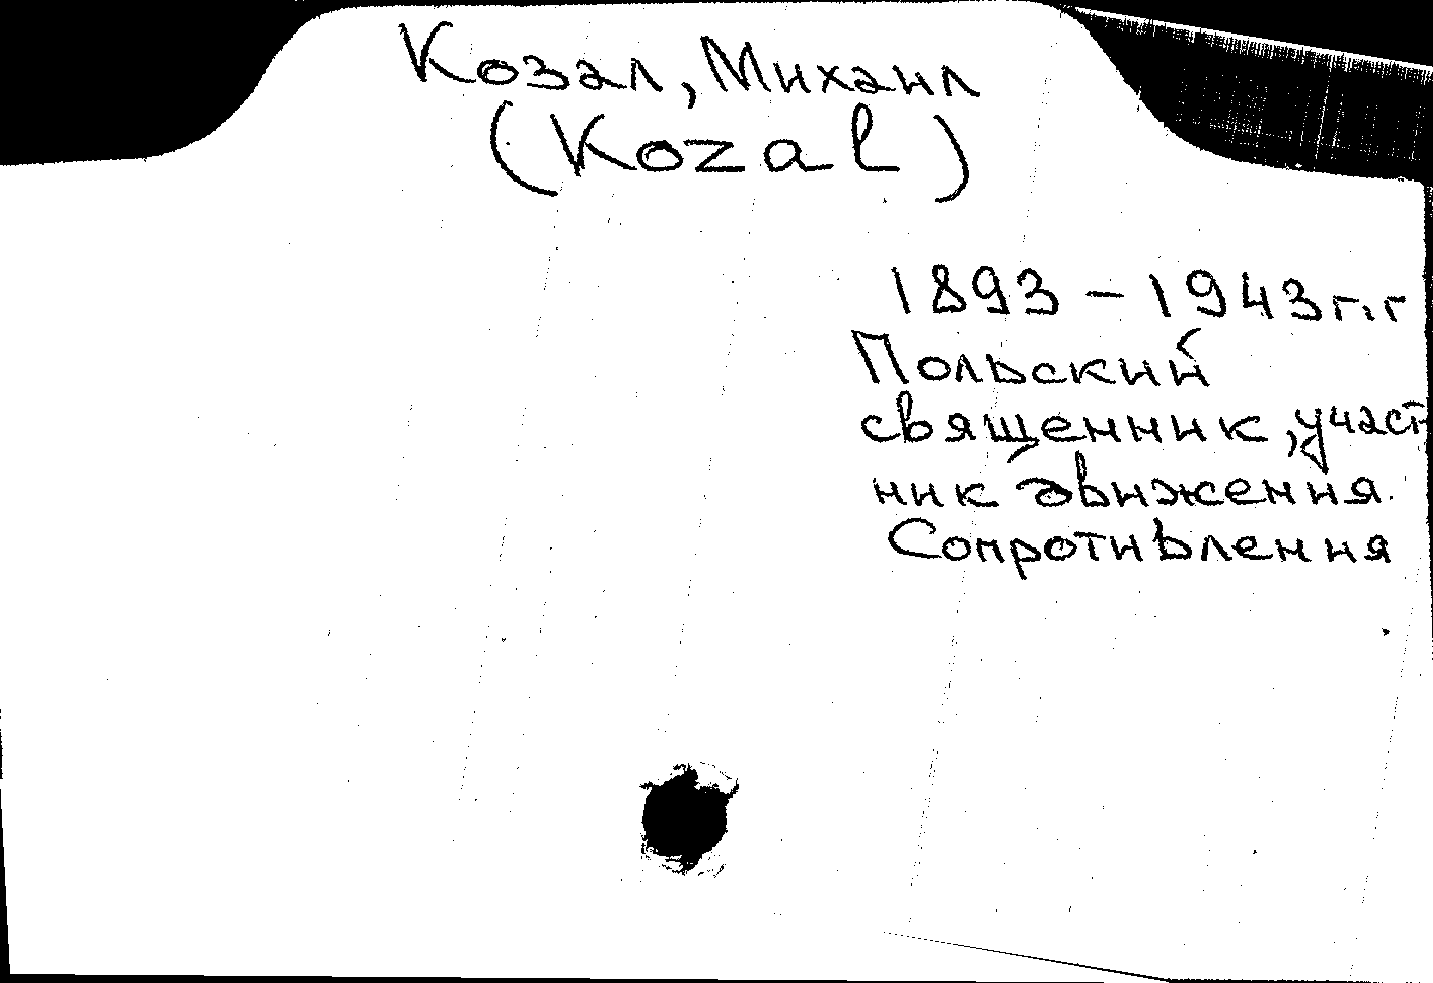 Козал, Михаил
(Kozal)
1893 – 1943 г.г
Польский
священник, участ
ник движения
Сопротивления